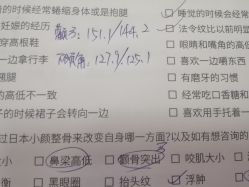 的时候经常蜷缩身体或是抱腿
□ 睡觉的时候会经常
妊娠的经历
151.1/144.2
☑ 法令纹比以前明显
穿高跟鞋
□ 眼睛和嘴角的高低
一边拿行李
127.9/125.1
□ 喜欢一边嚼东西
□ 有磨牙的习惯
的高低不一致
□ 经常吃口香糖和
子的时候裙子会转向一边
□ 喜欢用手托着
过日本小颜整骨来改变自身哪一方面?以及如有想咨询的
大小
□ 鼻梁高低
□ 颧骨突出
□ 咬肌大小
□
□ 黑眼圈
□ 抬头纹
☑ 浮肿